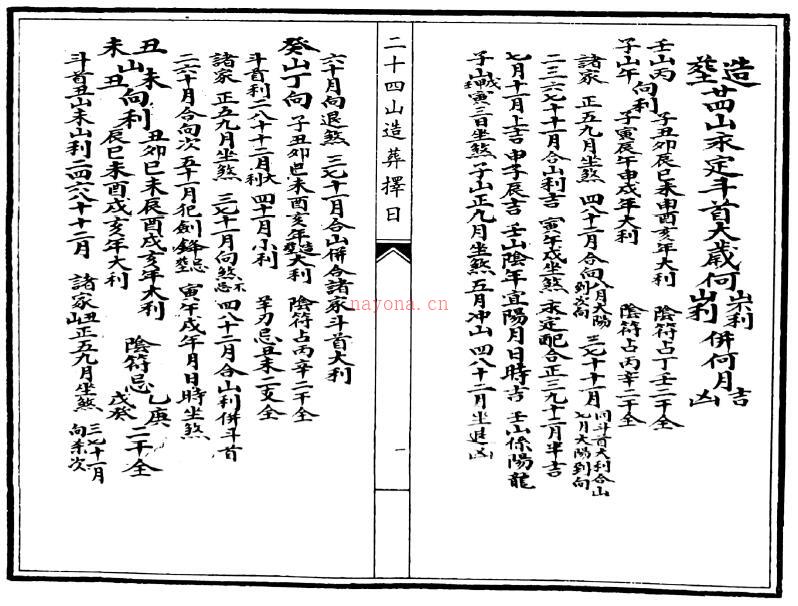 造葬廿四山永定斗首大歲何山利不利併何月吉凶
壬山丙向利 子丑卯辰巳未申酉亥年大利 陰符占丁壬二干全
子山午向利 子寅辰午申戌年大利 陰符占丙辛二干全
諸家 正五九月坐煞 四八十二月合向八月太陽到向 三七十一月同斗首大利合山七月太陽到向
二三六七十十一月合山利吉 寅午戌坐煞 永定配合正三九十二月半吉
七月十一月上吉 申子辰吉 壬山陰年宜陽月日時吉 壬山係陽龍
子山寅戌日坐煞 子山正九月坐煞 五月冲山 四八十二月坐退凶
二十四山造葬擇日
一
六十月向退煞 三七十一月合山併合諸家斗首大利
癸山丁向 子丑卯巳未酉亥年造葬大利 陰符占丙辛二干全
斗首利二八十十二月大利 四十一月小利 羊刃忌丑未二支全
諸家 正五九月坐煞 三七十一月向煞不忌 四八十二月合山利併斗首
二六十月合向次 五十一月犯劍鋒忌葬 寅午戌年月日時坐煞
丑山未向利 丑卯巳未辰酉戌亥年大利 陰符忌乙庚二干全
未山丑向利 辰巳未酉戌亥年大利 戊癸
斗首丑山未山利二四六八十十二月 諸家丑山正五九月坐煞 三七十一月向煞次
nayona.cn